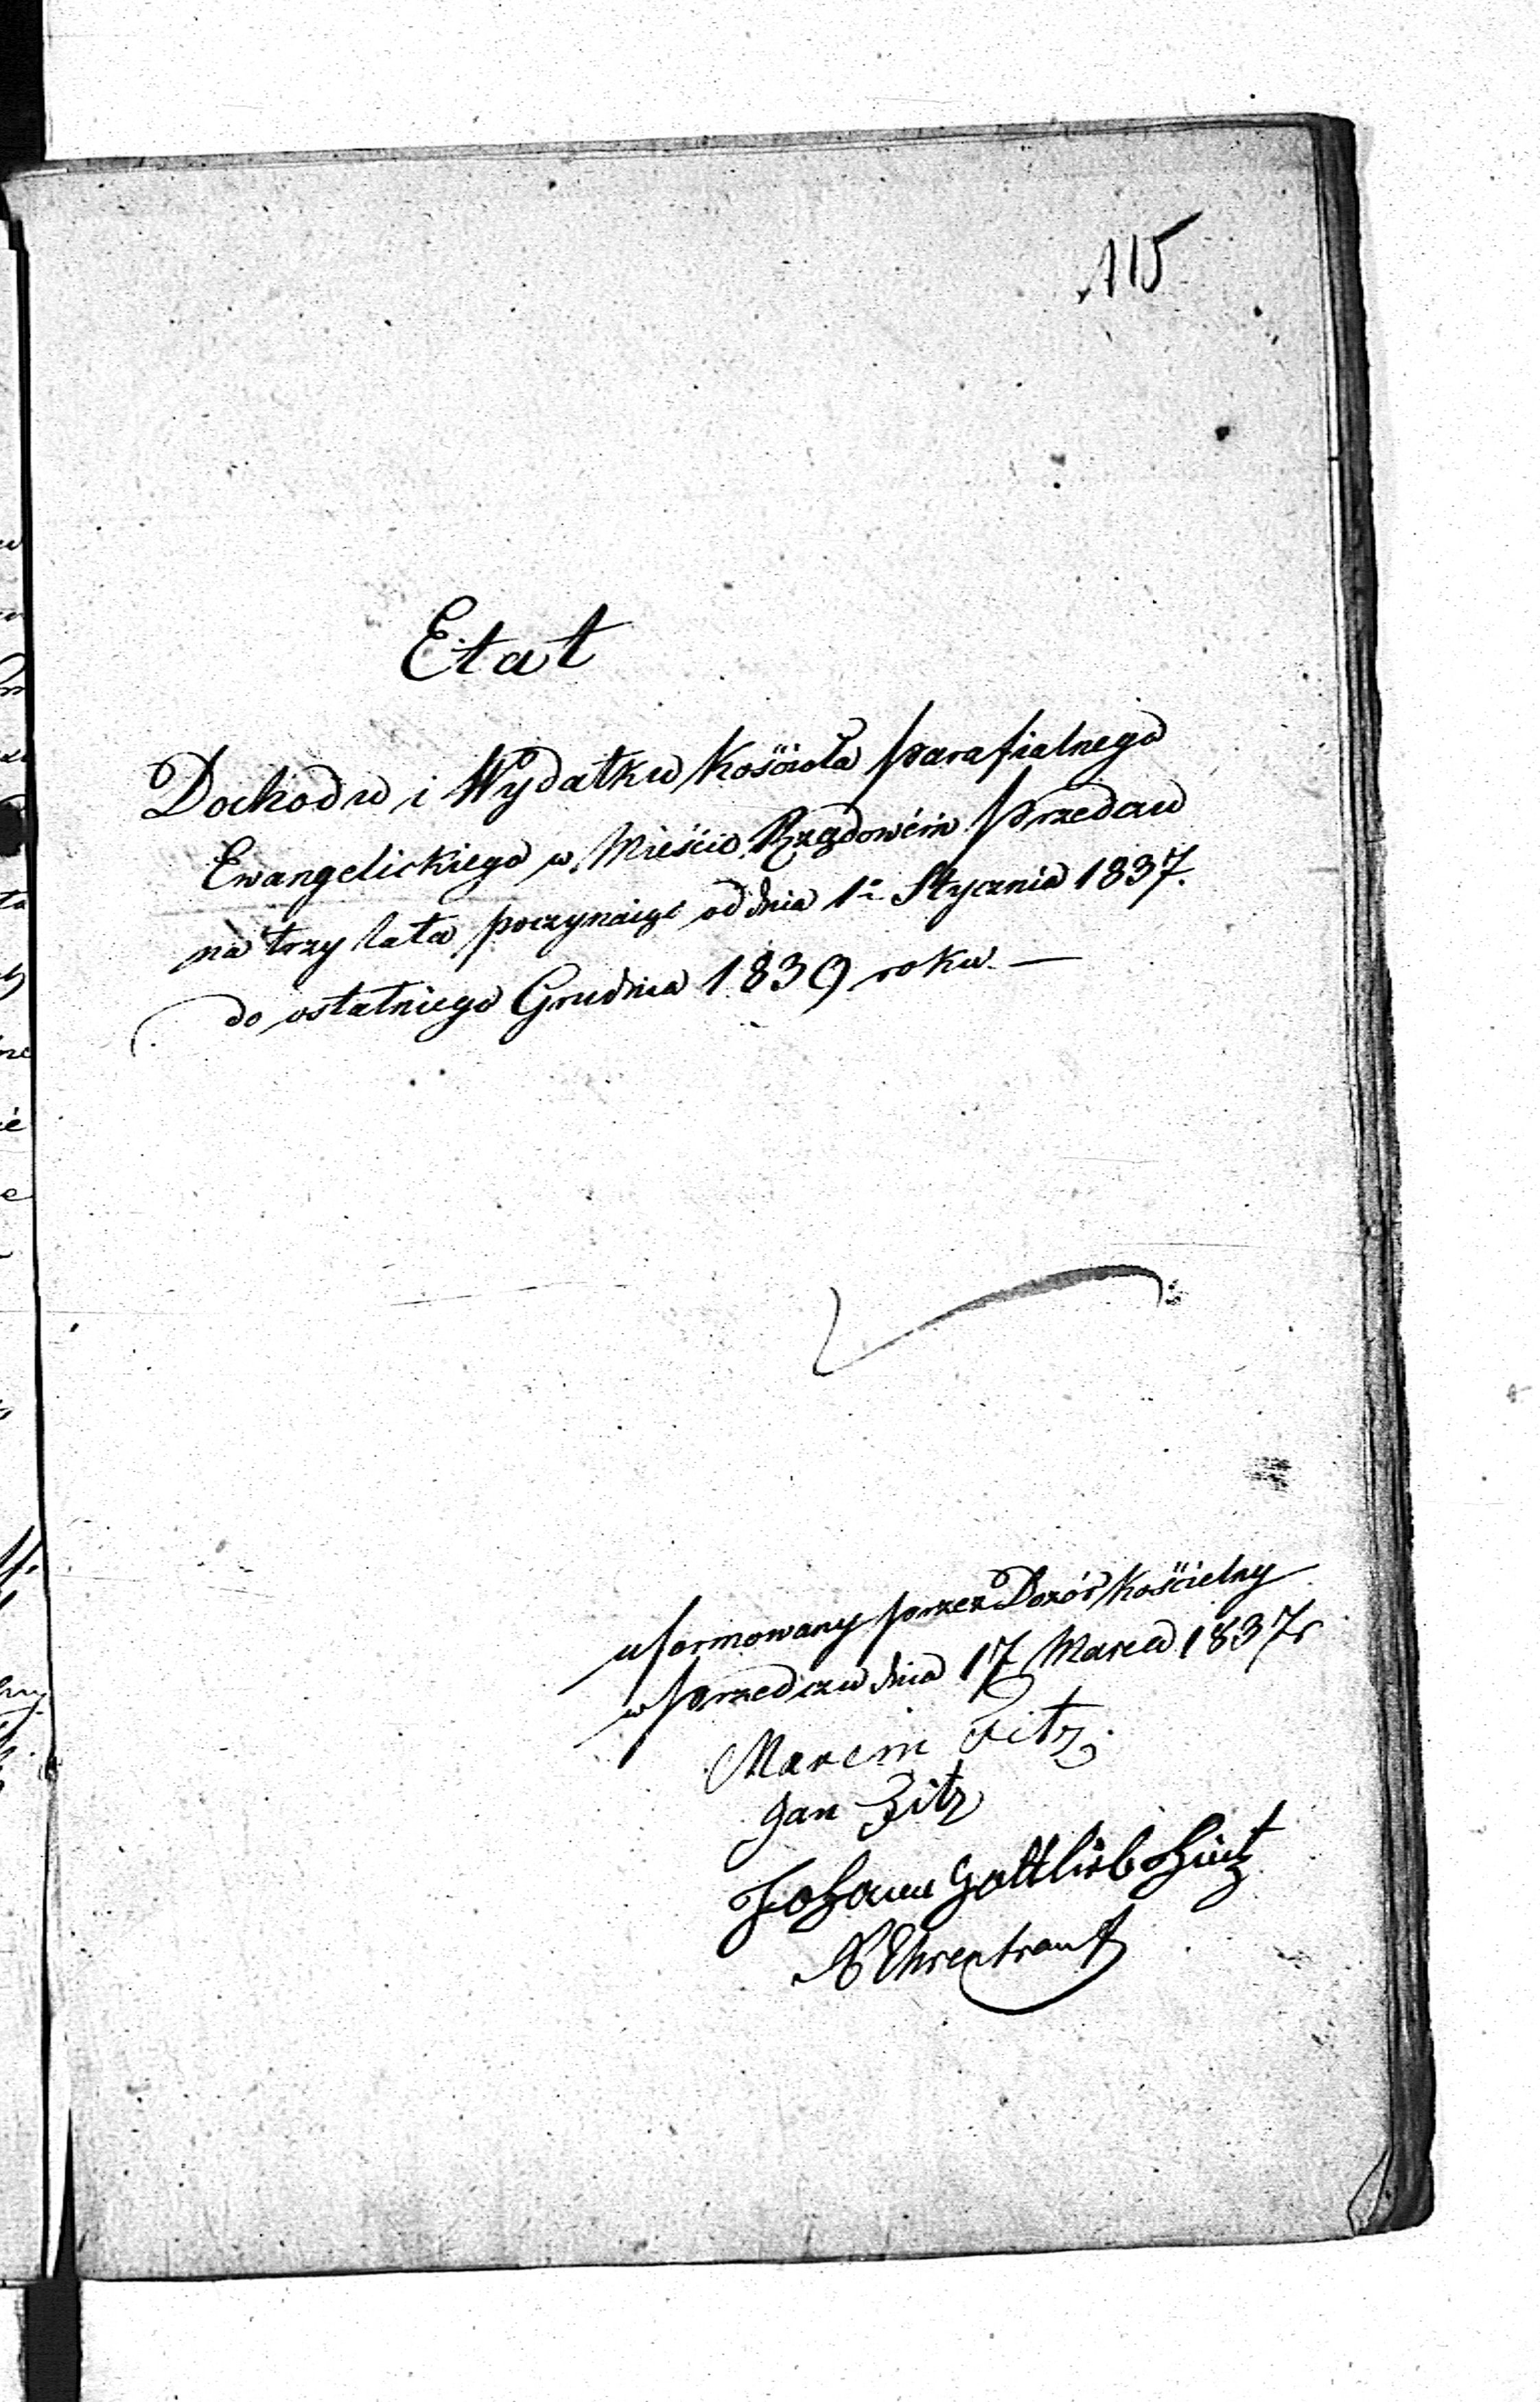 115
Etat
Dochodu i Wydatku Kościoła parafialnego
Ewangelickiego w Mieście Rządowém Przedczu
na trzy lata poczynaiąc od dnia 1º Stycznia 1837.
do ostatniego Grudnia 1839 roku. —
uformowany przez Dozór Kościelny
w Przedczu dnia 17 Marca 1837 r
Marcin Zitz
Jan Zitz
Johann Gottlieb
Ehrentraut